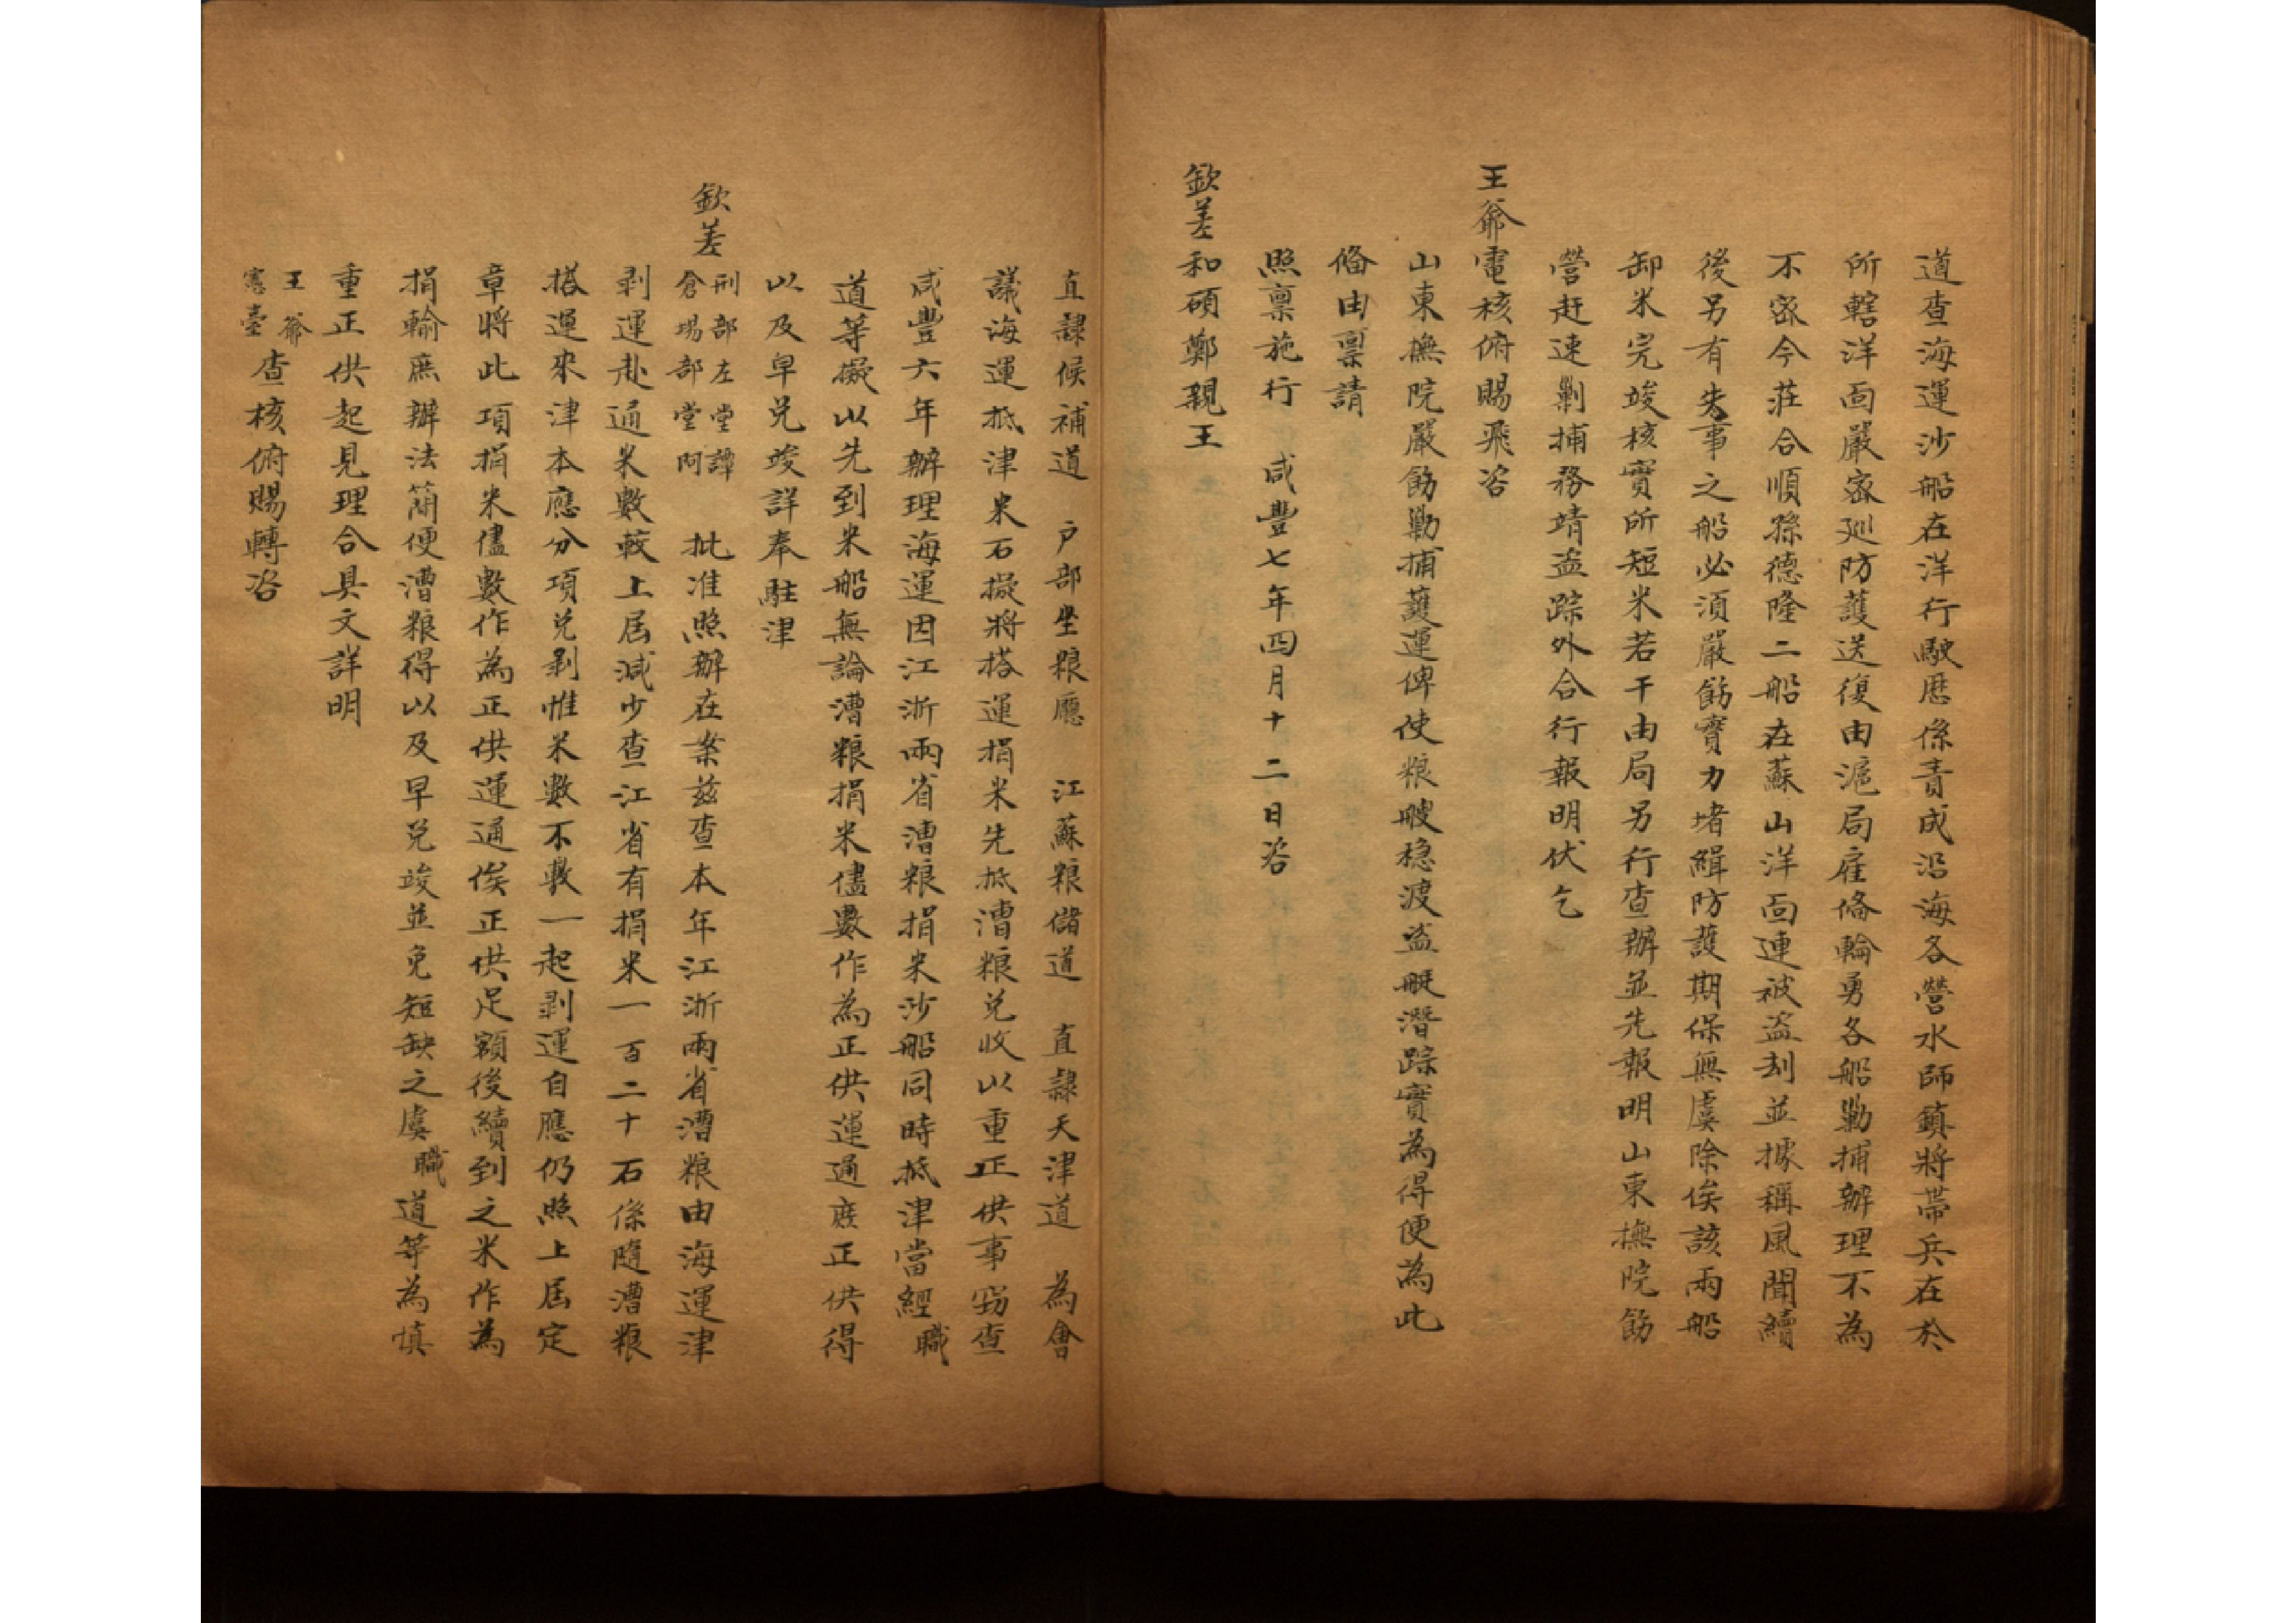 道查海運沙船在洋行駛歷係責成沿海各營水師鎮將帶兵在於
所轄洋面嚴密巡防護送復由滬局雇俻輪勇各船勦捕辦理不為
不密今莊合順孫德隆二船在蘇山洋面連被盜刦並據稱風聞續
後另有失事之船必須嚴飭實力堵緝防護期保無虞除俟該兩船
卸米完竣核實所短米若干由局另行查辦並先報明山東撫院飭
營赶速剿捕務靖盜踪外合行報明伏乞
王爺電核俯賜飛咨
山東撫院嚴飭勦捕護運俾使粮艘穏渡盜艇潛踪實為得便為此
俻由禀請
照禀施行 咸豐七年四月十二日咨
欽差和碩鄭親王
直隷候補道 户部坐粮廳 江蘇粮儲道 直隷天津道 為會
議海運抵津米石擬將搭運捐米先抵漕粮兑收以重正供事竊查
咸豐六年辦理海運因江浙兩省漕粮捐米沙船同時抵津當經職
道等擬以先到米船無論漕粮捐米儘數作為正供運通庶正供得
以及早兑竣詳奉駐津
欽差刑部左堂譚倉場部堂阿 批准照辦在案茲查本年江浙兩省漕粮由海運津
剥運赴通米數較上届減少查江省有捐米一百二十石係隨漕粮
搭運來津本應分項兑剥惟米數不敷一起剥運自應仍照上届定
章將此項捐米儘數作為正供運通俟正供足額後續到之米作為
捐輸庶辦法簡便漕粮得以及早兑竣並免短缺之虞職道等為慎
重正供起見理合具文詳明
王爺憲臺查核俯賜轉咨